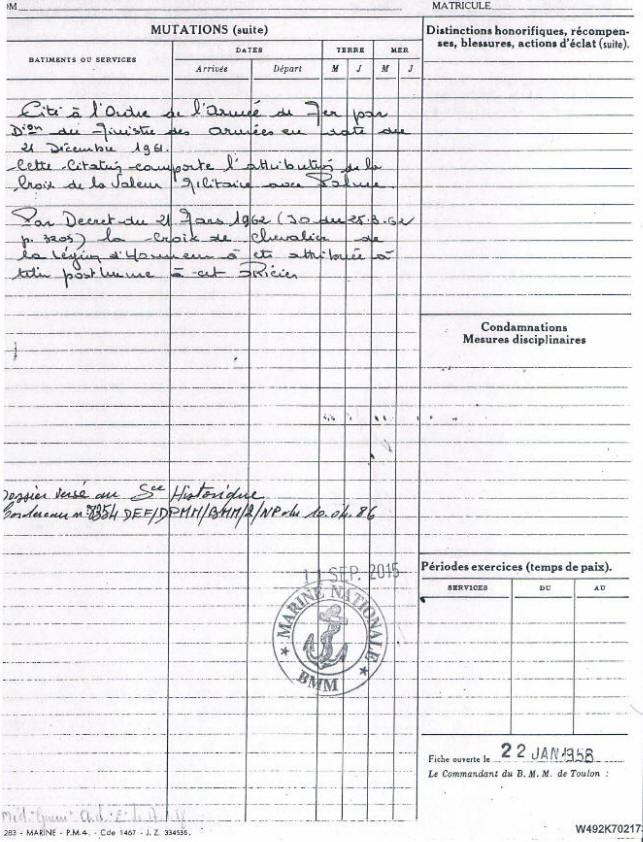 MATRICULE
MUTATIONS (suite)
BATIMENTS OU SERVICES
DATES
TERRE
MER
Arrivée
Départ
M
J
M
J
Cité à l'Ordre de l'Armée de Mer par
Dion du Ministre des Armées en date du
21 Décembre 1961.
Cette Citation comporte l'attribution de la
Croix de la Valeur Militaire avec Palme.
Par Decret du 21 Mars 1962 (JO du 25.3.62
p. 3205) la Croix de Chevalier de
la Légion d'Honneur a été attribuée à
titre posthume à cet Officier
Dossier versé au Sce Historique
Bordereau n° 7354 DEF/DPMM/BMM/2/NP du 10.04.86
11 SEP. 2015
MARINE NATIONALE
BMM
283 - MARINE - P.M.4. - Cde 1467 - J. Z. 334535.
Distinctions honorifiques, récompen-
ses, blessures, actions d'éclat (suite).
Condamnations
Mesures disciplinaires
Périodes exercices (temps de paix).
SERVICES
DU
AU
Fiche ouverte le 22 JAN 1958
Le Commandant du B. M. M. de Toulon :
W492K70217